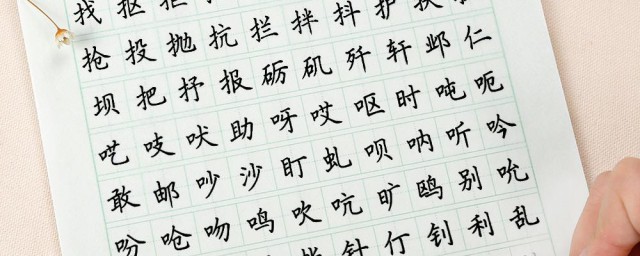 找 抠
抢 投 抛 抗 拦 拌 抖 护 扶
坝 把 抒 报 砺 矶 歼 轩 邺 仁
呓 吱 吠 助 呀 哎 呕 时 吨 呃
敢 邮 吵 沙 盯 虬 呗 呐 听 吟
吩 呛 吻 鸣 吹 吭 旷 鸥 别 吮
针 仃 钊 利 乱